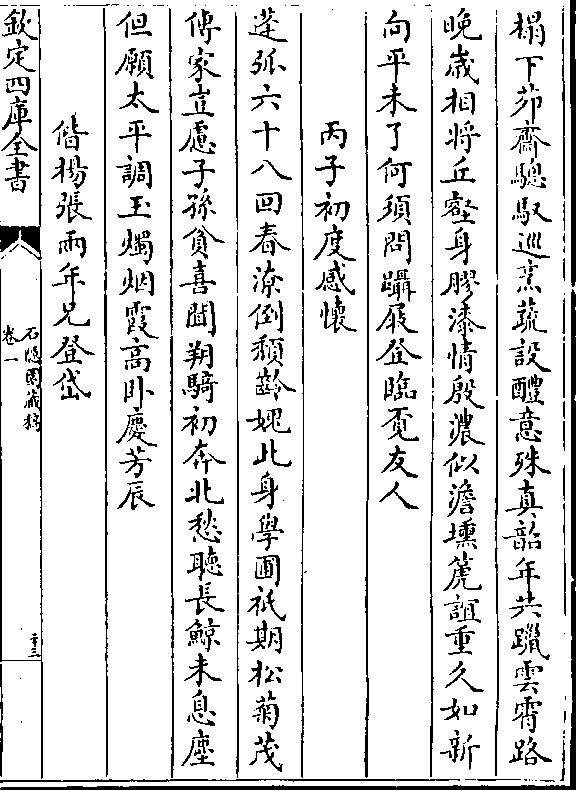 榻下茆齋驄馭巡烹蔬設醴意殊真韶年共躡雲霄路
晚歳相將丘壑身膠漆情殷濃似澹壎箎誼重久如新
向平未了何須問躡屐登臨覔友人
丙子初度感懷
蓬弧六十八回春潦倒頽齡媿此身學圃祇期松菊茂
傳家豈慮子孫貧喜聞朔騎初奔北愁聽長鯨未息塵
但願太平調玉燭烟霞高卧慶芳辰
偕楊張兩年兄登岱
欽定四庫全書
石隠園藏稿
卷一
二十三